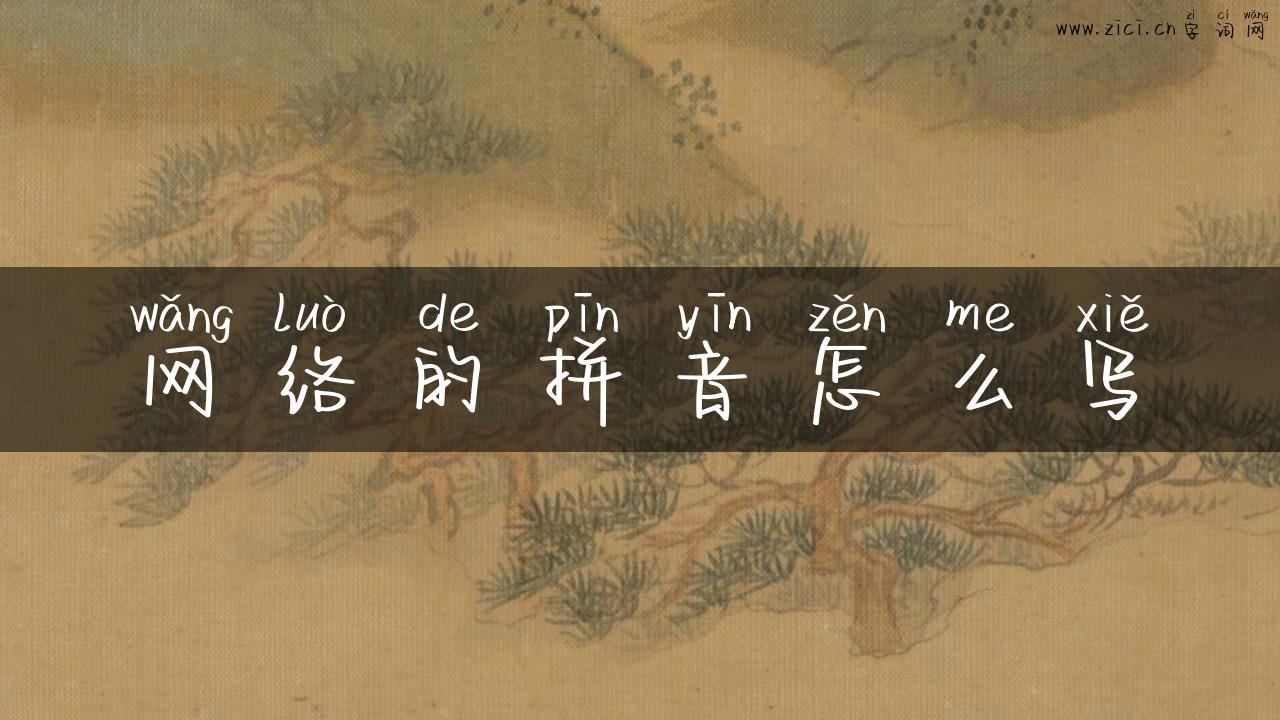 zì cí wǎng
www.zici.cn 字 词 网
wǎng luò de pīn yīn zěn me xiě
网 络 的 拼 音 怎 么 写